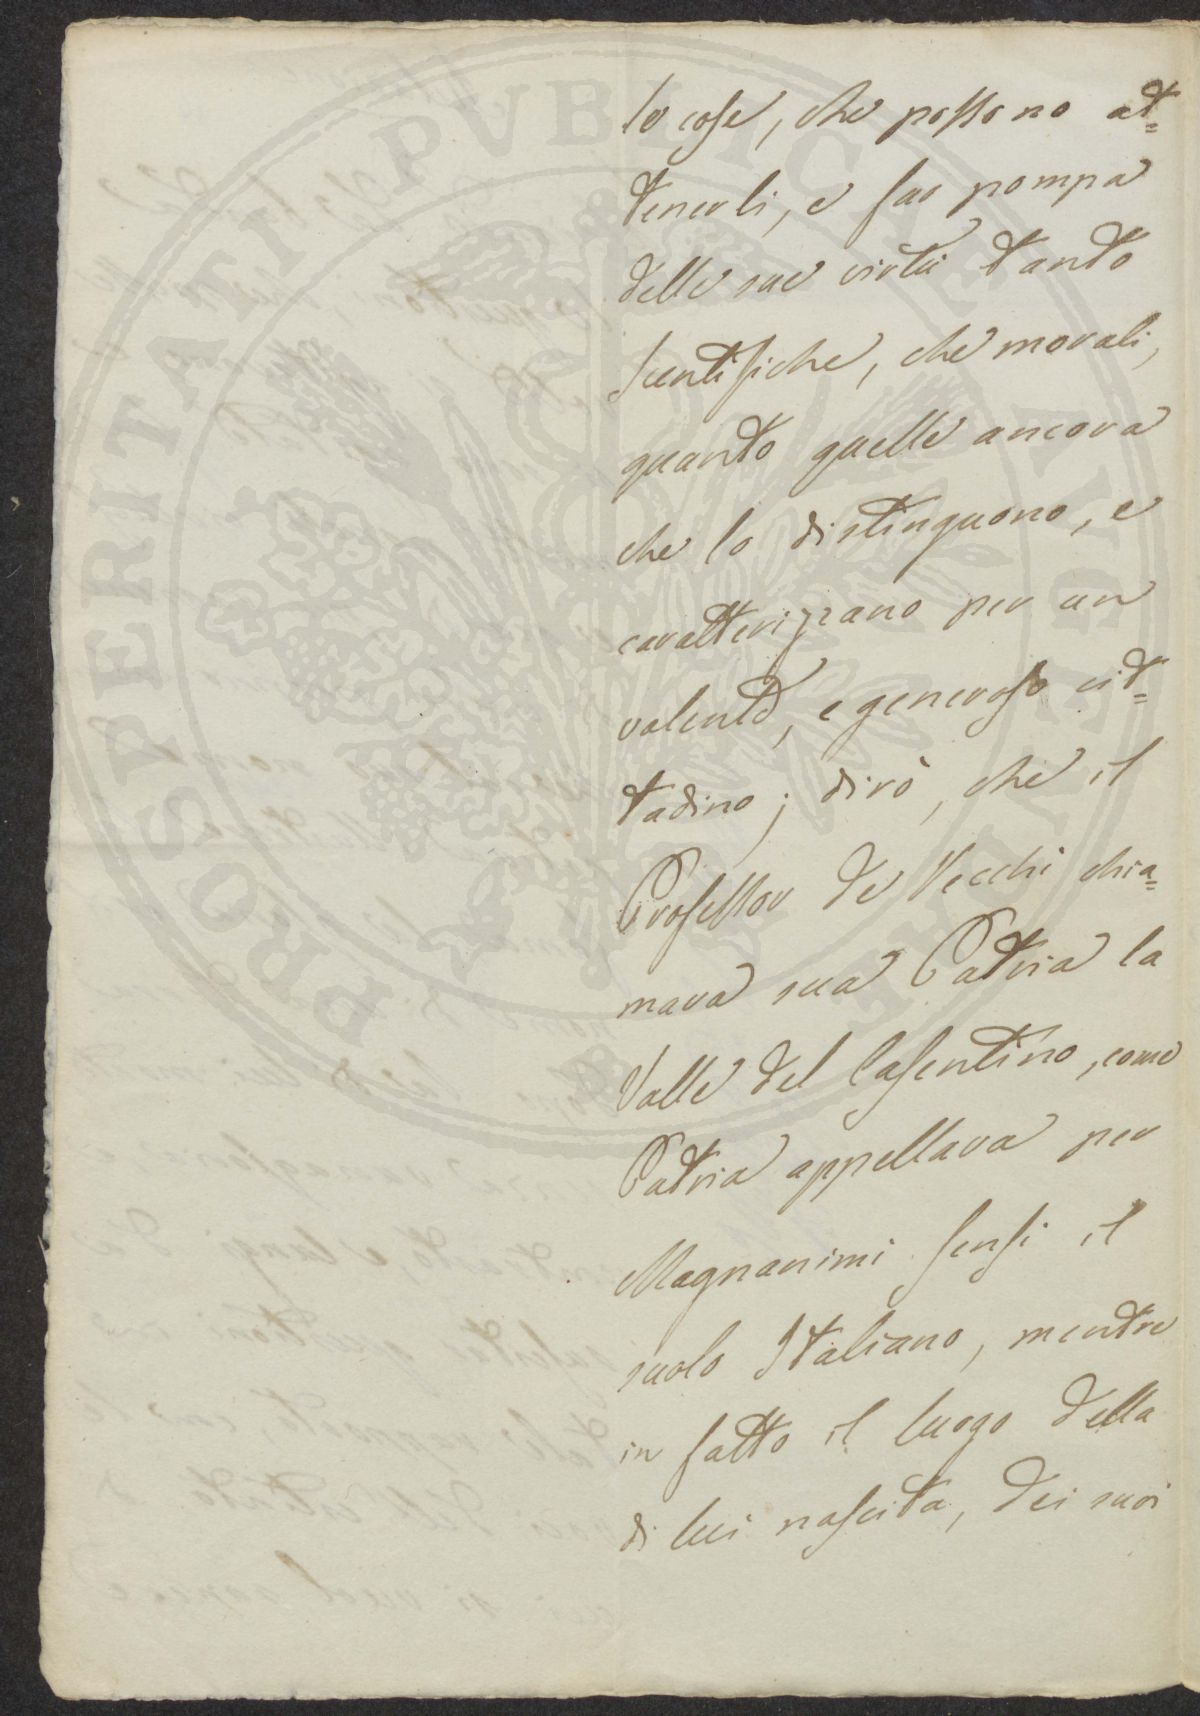 le cose, che possono at=
tenerli, e far pompa
delle sue virtù tanto
Scentifiche, che morali,
quanto quelle ancora
che lo distinguono, e
caratterizzano per un
valente, e generoso cit=
tadino; dirò, che il
Professor De Vecchi chia=
mava sua Patria la
Valle del Casentino, come
Patria appellava per
Magnanimi sensi il
suolo Italiano, mentre
in fatto il luogo della
di lui nascita, dei suoi
PROSPERITATI PUBLICAE AUGENDAE